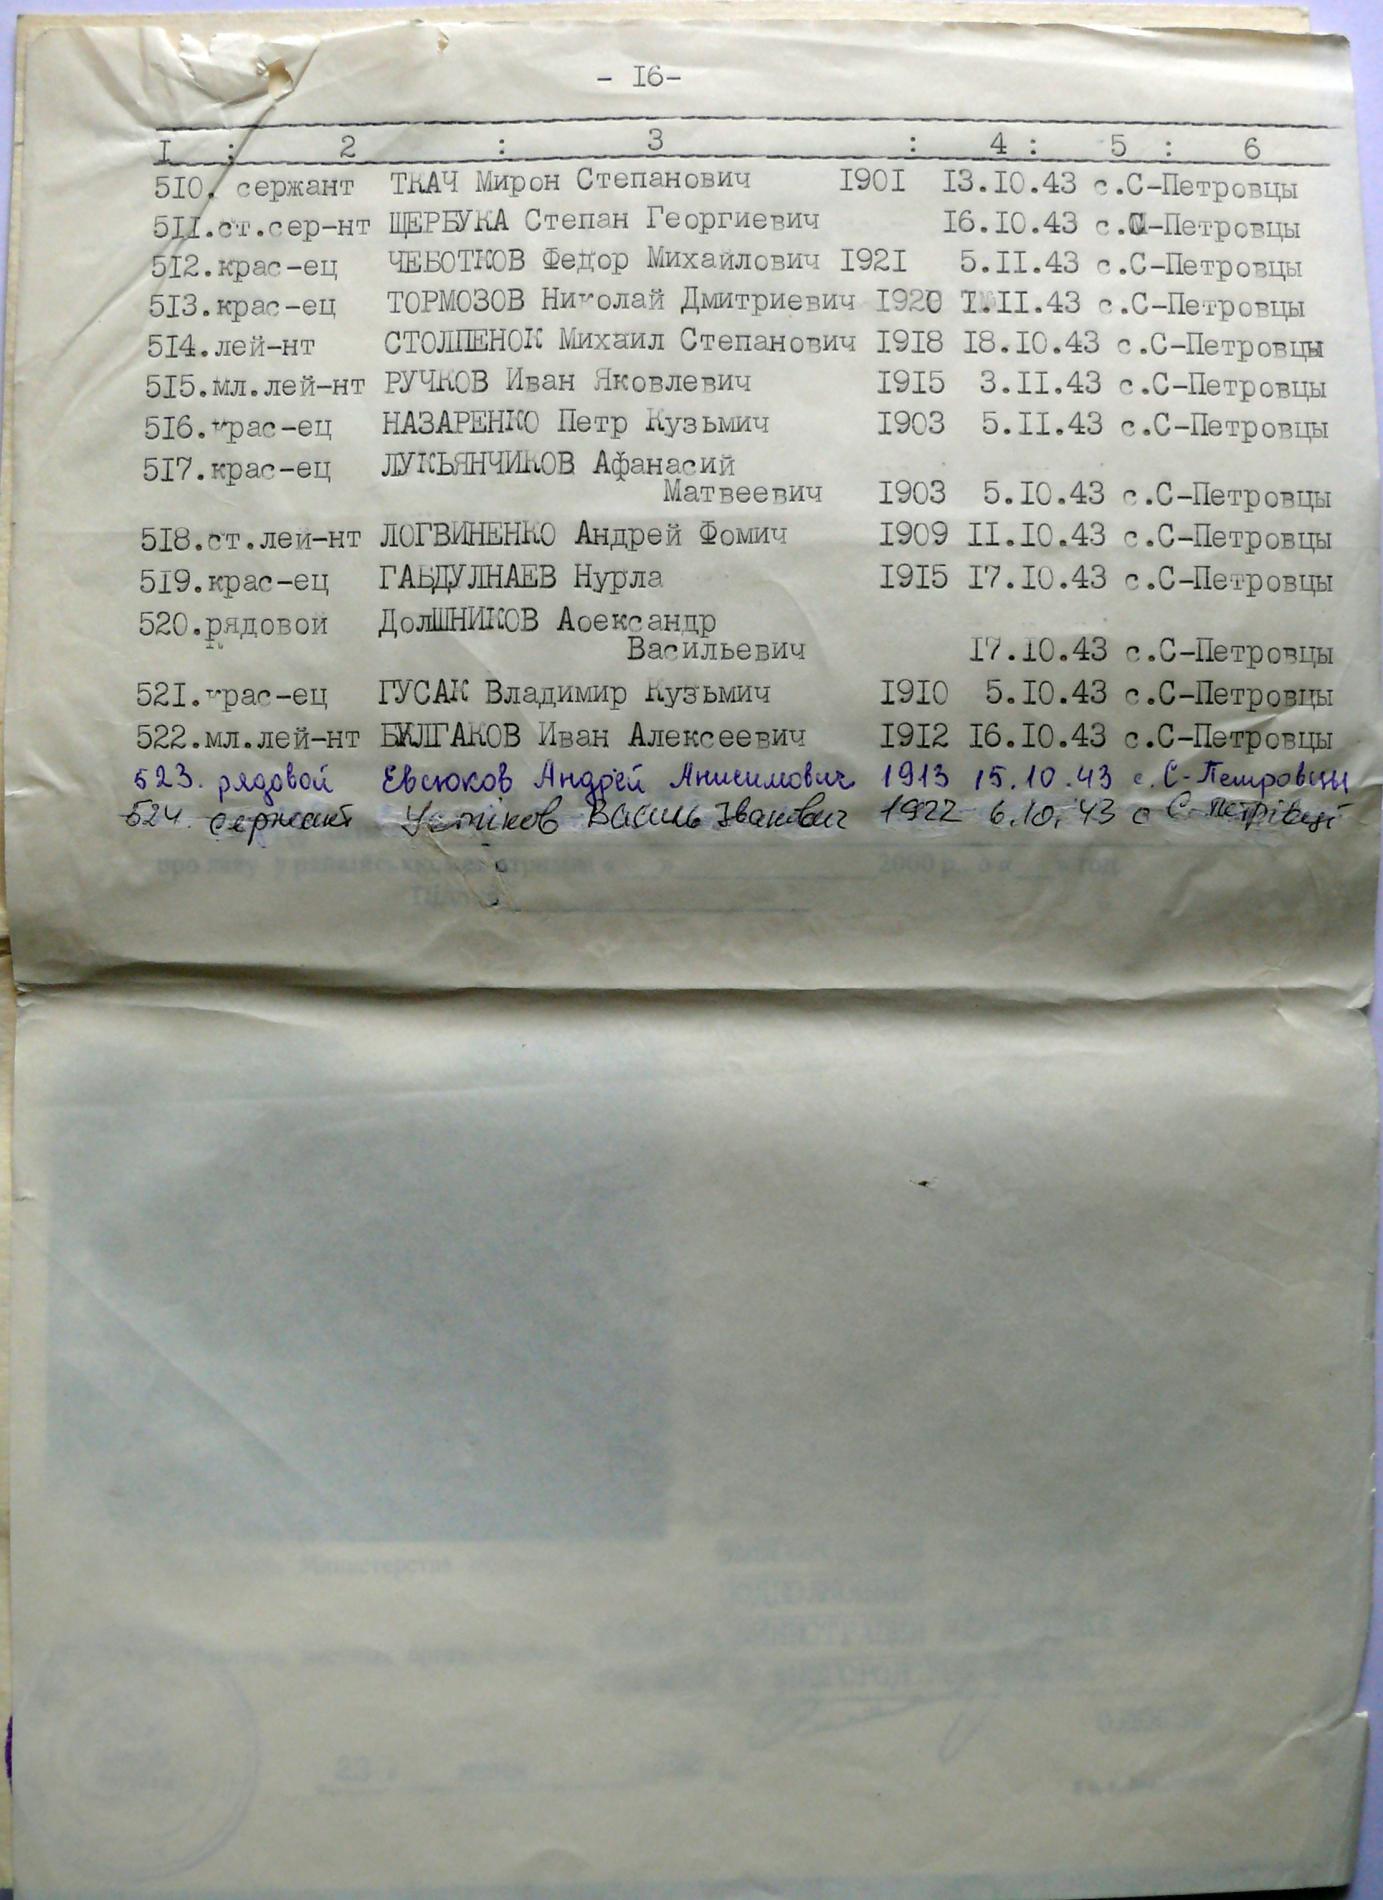 - I6-
I : 2 : 3 : 4 : 5 : 6
5I0. сержант ТКАЧ Мирон Степанович I90I I3.I0.43 с.С-Петровцы
5II.ст.сер-нт ЩЕРБУКА Степан Георгиевич I6.I0.43 с.С-Петровцы
5I2.крас-ец ЧЕБОТКОВ Федор Михайлович I92I 5.II.43 с.С-Петровцы
5I3.крас-ец ТОРМОЗОВ Николай Дмитриевич I920 I.II.43 с.С-Петровцы
5I4.лей-нт СТОЛПЕНОК Михаил Степанович I9I8 I8.I0.43 с.С-Петровцы
5I5.мл.лей-нт РУЧКОВ Иван Яковлевич I9I5 3.II.43 с.С-Петровцы
5I6.крас-ец НАЗАРЕНКО Петр Кузьмич I903 5.II.43 с.С-Петровцы
5I7.крас-ец ЛУКЬЯНЧИКОВ Афанасий
Матвеевич I903 5.I0.43 с.С-Петровцы
5I8.ст.лей-нт ЛОГВИНЕНКО Андрей Фомич I909 II.I0.43 с.С-Петровцы
5I9.крас-ец ГАБДУЛНАЕВ Нурла I9I5 I7.I0.43 с.С-Петровцы
520.рядовой ДолШНИКОВ Аоександр
Васильевич I7.I0.43 с.С-Петровцы
52I.крас-ец ГУСАК Владимир Кузьмич I9I0 5.I0.43 с.С-Петровцы
522.мл.лей-нт БУЛГАКОВ Иван Алексеевич I9I2 I6.I0.43 с.С-Петровцы
523. рядовой Евсюков Андрей Анисимович 1913 15.10.43 с. С-Петровцы
524. сержант Устінов Василь Іванович 1922 6.10.43 с С-Петрівці